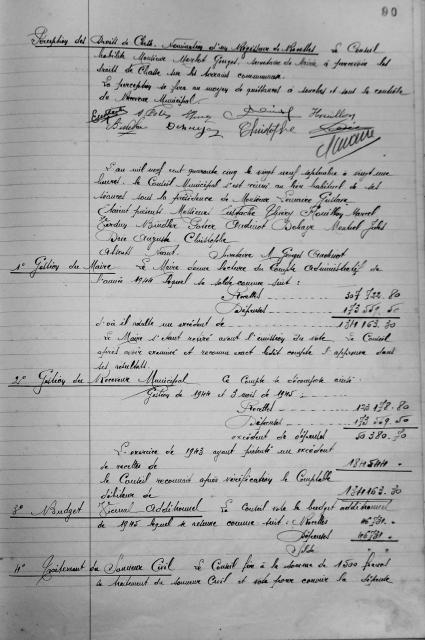 90
Perception des Droits de Chasse. Nomination d'un Régisseur de Recettes Le Conseil
habilite Monsieur Martot Georges, secrétaire de Mairie à percevoir les
droits de Chasse sur les terrains communaux.
La perception se fera au moyen de quittancier à souches et sous le contrôle
du Receveur Municipal.
Christophe
L'an mil neuf cent quarante cinq le vingt neuf septembre à vingt une
heures, le Conseil Municipal s'est réuni au lieu habituel de ses
séances sous la présidence de Monsieur Lemaire Gustave
Étaient présents Messieurs Eustache Thierry Marcel
Bindler Audinot Jules
Auguste Christophe
Absents Néant. Secrétaire M. Georges Audinot
1° Gestion du Maire. Le Maire donne lecture du Compte Administratif de
l'année 1944 lequel se solde comme suit :
Recettes 307 722. 80
Dépenses 173 559. 50
d'où il résulte un excédent de 134 163. 30
Le Maire s'étant retiré avant l'émission du vote. Le Conseil
après avoir examiné et reconnu exact ledit compte l'approuve dans
ses résultats.
2° Gestion du Receveur Municipal Ce Compte se décompose ainsi :
Gestion de 1944 et 3 mois de 1945 :
Recettes 123 178. 80
Dépenses 173 559. 50
excédent de dépenses 50 380. 70
L'exercice de 1943 ayant présenté un excédent
de recettes de 184 544 "
Le Conseil reconnait après vérification le Comptable
débiteur de 134 163. 30
3° Budget Additionnel Le Conseil vote le budget additionnel
de 1945 lequel se résume comme suit : Recettes
Dépenses
Solde "
4° Traitement du Sonneur Civil Le Conseil fixe à la somme de 1500 francs
le traitement du sonneur Civil et vote pour couvrir la dépense